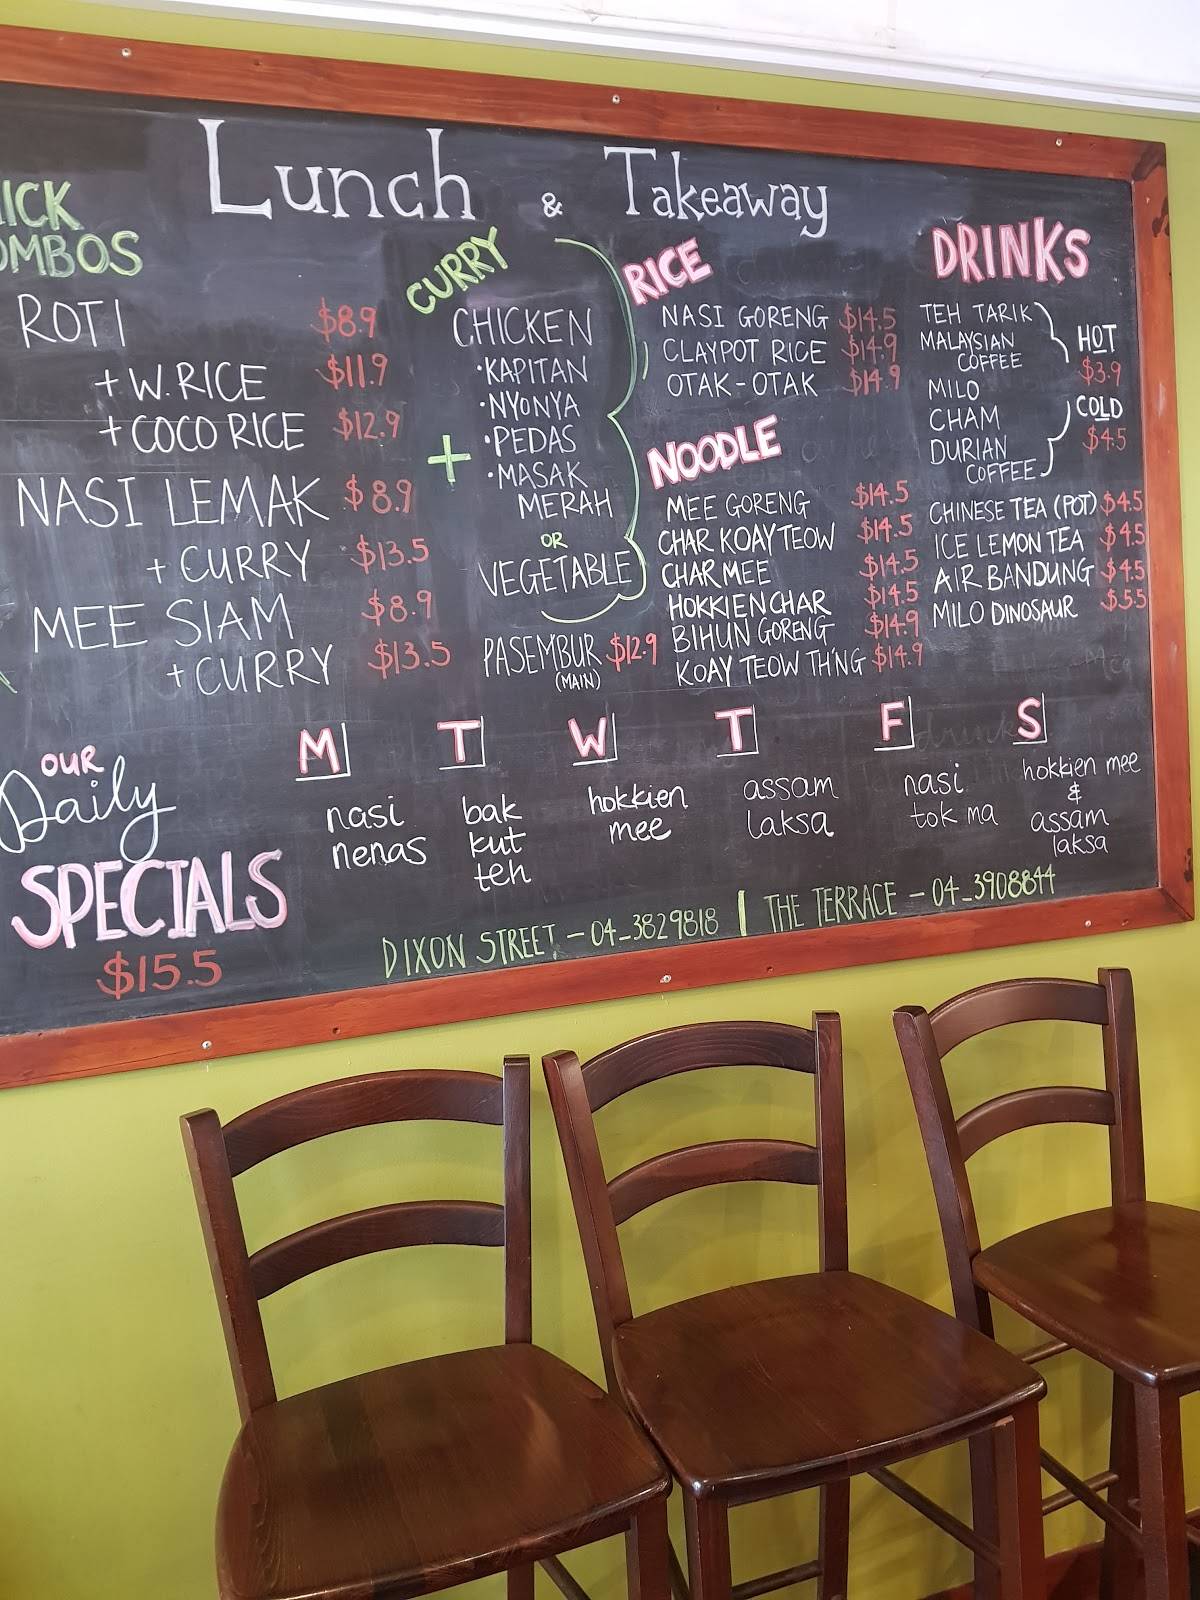 Lunch & Takeaway
ICK
OMBOS
ROTI $8.9
+ W. RICE $11.9
+ COCO RICE $12.9
NASI LEMAK $8.9
+ CURRY $13.5
MEE SIAM $8.9
+ CURRY $13.5
+
CURRY
CHICKEN
·KAPITAN
·NYONYA
·PEDAS
·MASAK
MERAH
OR
VEGETABLE
PASEMBUR $12.9
(MAIN)
RICE
NASI GORENG $14.5
CLAYPOT RICE $14.9
OTAK-OTAK $14.9
NOODLE
MEE GORENG $14.5
CHAR KOAY TEOW $14.5
CHAR MEE $14.5
HOKKIEN CHAR $14.5
BIHUN GORENG $14.9
KOAY TEOW TH'NG $14.9
DRINKS
TEH TARIK
MALAYSIAN
COFFEE
MILO
CHAM
DURIAN
COFFEE
HOT
$3.9
COLD
$4.5
CHINESE TEA (POT) $4.5
ICE LEMON TEA $4.5
AIR BANDUNG $4.5
MILO DINOSAUR $5.5
OUR
Daily
SPECIALS
$15.5
M
nasi
nenas
T
bak
kut
teh
W
hokkien
mee
T
assam
laksa
F
nasi
tok ma
S
hokkien mee
&
assam
laksa
DIXON STREET - 04_3829818 | THE TERRACE - 04_3908844